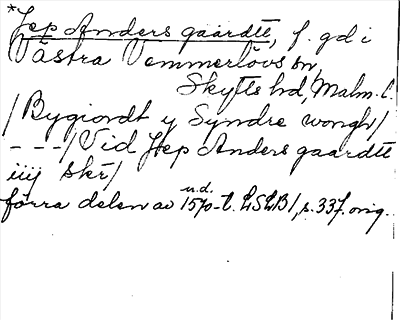 *Jep Anders gaardtt, f. gd i
Västra Vemmerlövs sn,
Skytts hd, Malm. l.
/Bygiordt y Syndre wongh/
- - -/Vid Jep Anders gaardtt
iiij skr/
förra delen av u.d. 1570-t. LSLB1, s. 337. orig.